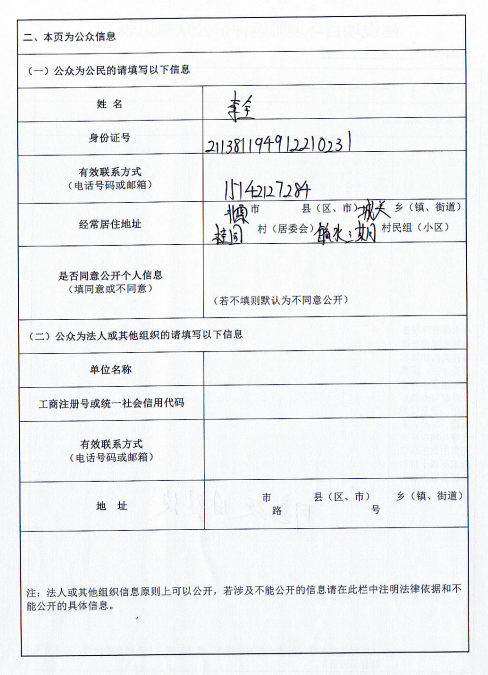 二、本页为公众信息
（一）公众为公民的请填写以下信息
姓 名 李全
身份证号 211381194912210231
有效联系方式
（电话号码或邮箱） 15742127284
北票 市 县（区、市） 城关 乡（镇、街道）
经常居住地址
村（居委会） 村民组（小区）
是否同意公开个人信息
（填同意或不同意）
（若不填则默认为不同意公开）
（二）公众为法人或其他组织的请填写以下信息
单位名称
工商注册号或统一社会信用代码
有效联系方式
（电话号码或邮箱）
地 址 市 县（区、市） 乡（镇、街道）
路 号
注：法人或其他组织信息原则上可以公开，若涉及不能公开的信息请在此栏中注明法律依据和不
能公开的具体信息。